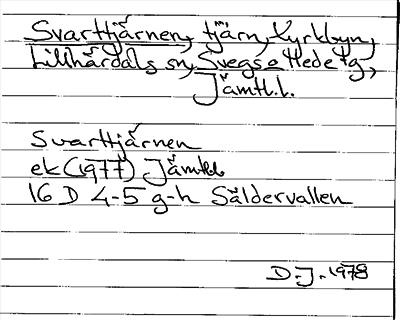 Svarttjärnen, tjärn, Kyrkbyn,
Lillhärdals sn, Svegs o Hede tg,
Jämtl. l.
Svarttjärnen
ek (1977) Jämtl.
16 D 4-5 g-h Säldervallen
D.J. 1978